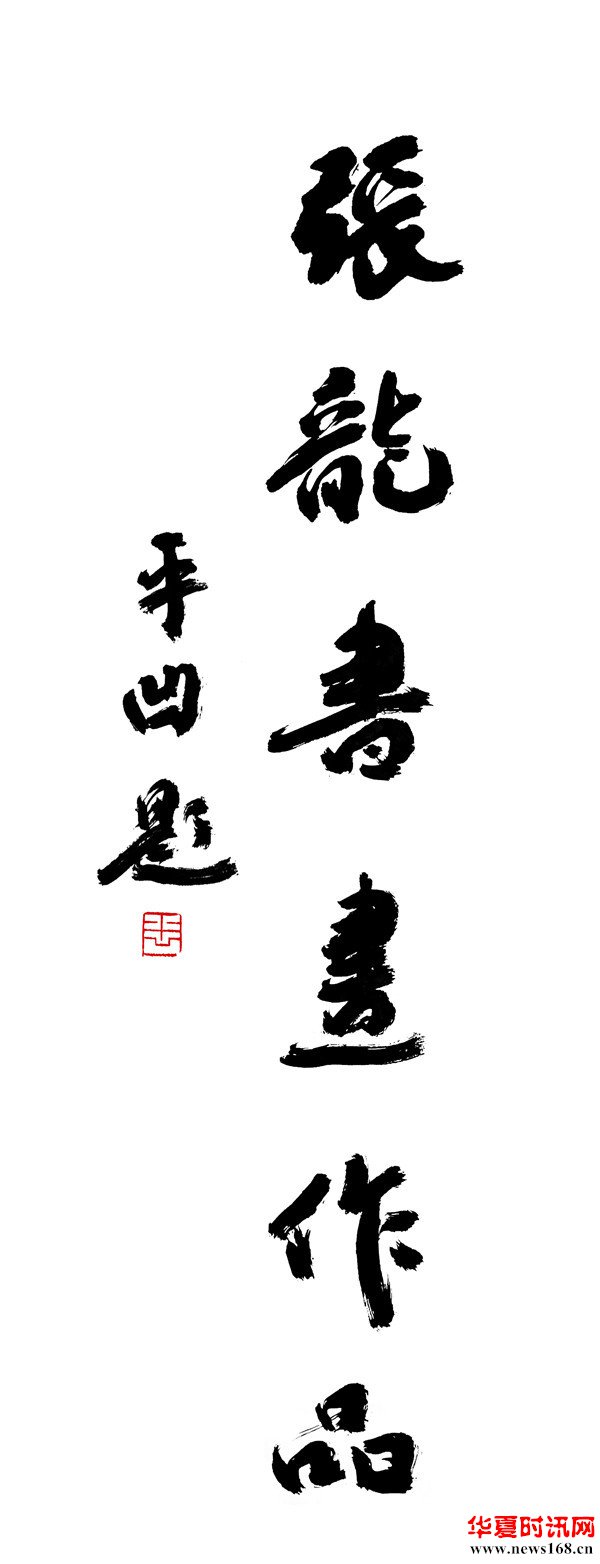 張龍書畫作品
平凹題
华夏时讯网
www.news168.cn